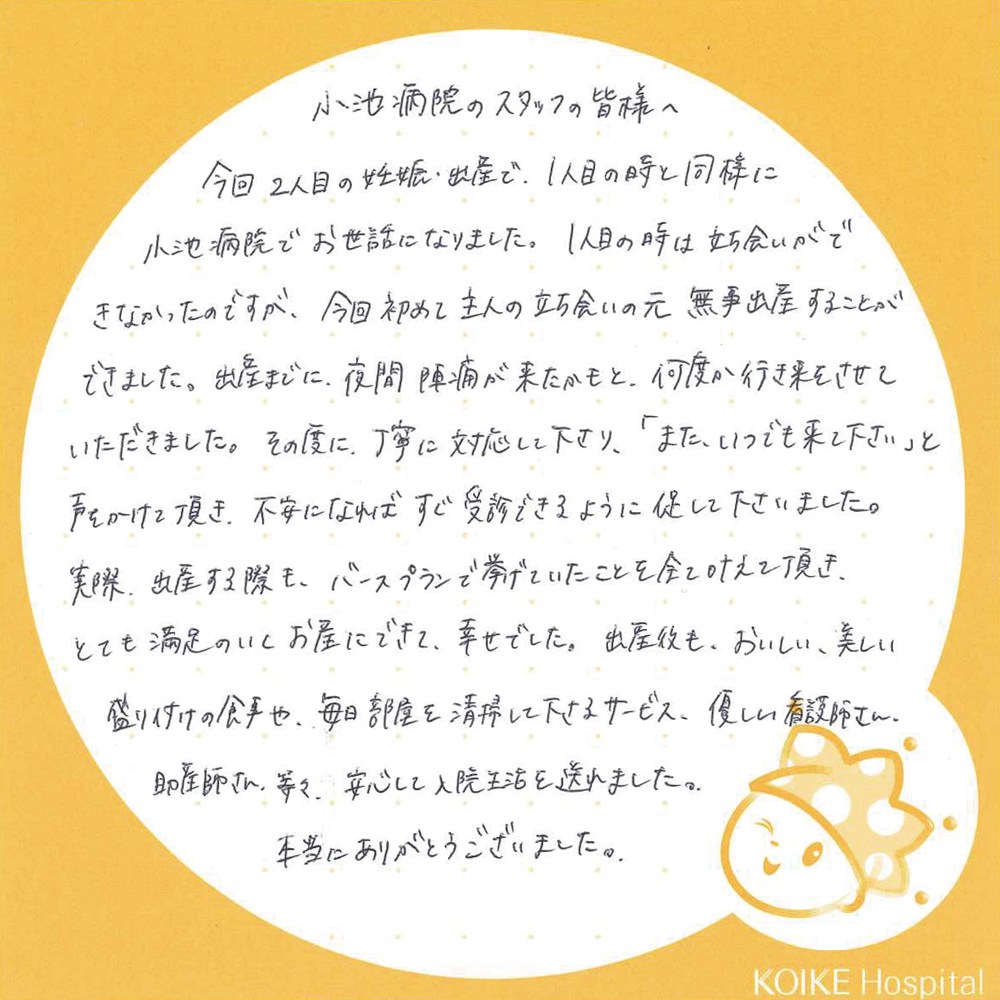 小池病院のスタッフの皆様へ
今回2人目の妊娠・出産で、1人目の時と同様に
小池病院でお世話になりました。1人目の時は立ち会いがで
きなかったのですが、今回初めて主人の立ち会いの元無事出産することが
できました。出産までに、夜間陣痛が来たかもと、何度か行き来をさせて
いただきました。その度に、丁寧に対応して下さり、「また、いつでも来て下さい」と
声をかけて頂き、不安になればすぐ受診できるように促して下さいました。
実際、出産する際も、バースプランで挙げていたことを全て叶えて頂き、
とても満足のいくお産にできて、幸せでした。出産後も、おいしい、美しい
盛り付けの食事や、毎日部屋を清掃して下さるサービス、優しい看護師さん、
助産師さん、等々、安心して入院生活を送れました。
本当にありがとうございました。
KOIKE Hospital